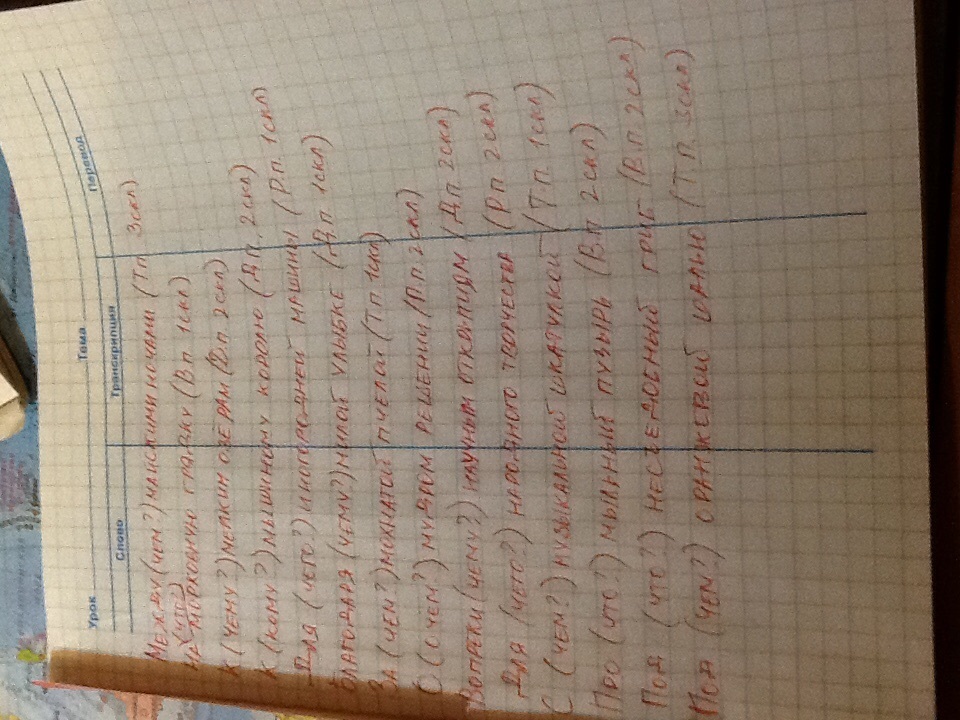 Урок Тема
Слово Транскрипция Перевод
Между (чем?) майскими ночами (Тп 3скл)
на (что?) морковную грядку (Вп 1скл)
К (чему?) мелким озёрам (Дп. 2скл)
К (кому?) мышиному королю (Дп. 2скл)
Для (чего?) иногородней машины (Р.п. 1скл)
Благодаря (чему?) милой улыбке (Дп. 1скл)
За (чем?) мохнатой пчелой (Тп 1скл)
О (о чём?) мудром решении (П.п. 2скл)
Вопреки (чему?) научным откр-тиям (Д.п. 2скл)
Для (чего?) народного творчества (Р.п 2скл)
С (чем?) музыкальной шкатулкой (Т.п. 1скл)
Про (что?) мыльный пузырь (В.п 2скл)
Под (что?) несъедобный гриб (В.п. 2скл)
Под (чем?) оранжевой шалью (Т.п. 3скл)